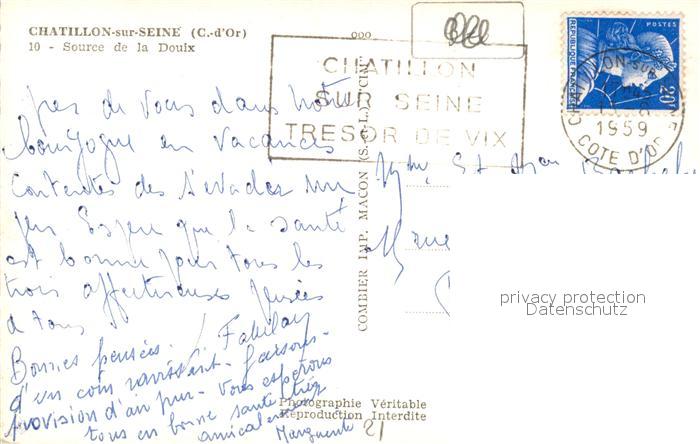 CHATILLON-sur-SEINE (C.-d'Or)
10 - Source de la Douix
pas de vous dans notre
bourgogne en vacances
Contentes de s'evader un
peu Espere que la santé
est bonne pour tous les
trois affectueuses pensées
a tous
Bonnes pensées
d'un coin ravissant - faisons
provision d'air pur - vous espérons
tous en bonne santé très
amicalement
Marguerite
21
CHATILLON
SUR SEINE
TRESOR DE VIX
COMBIER IMP. MACON (S.-&-L.) "CIM"
REPUBLIQUE FRANÇAISE
POSTES
20F
CHATILLON-SUR-SEINE
1959
COTE D'OR
privacy protection
Datenschutz
Photographie Véritable
Reproduction Interdite